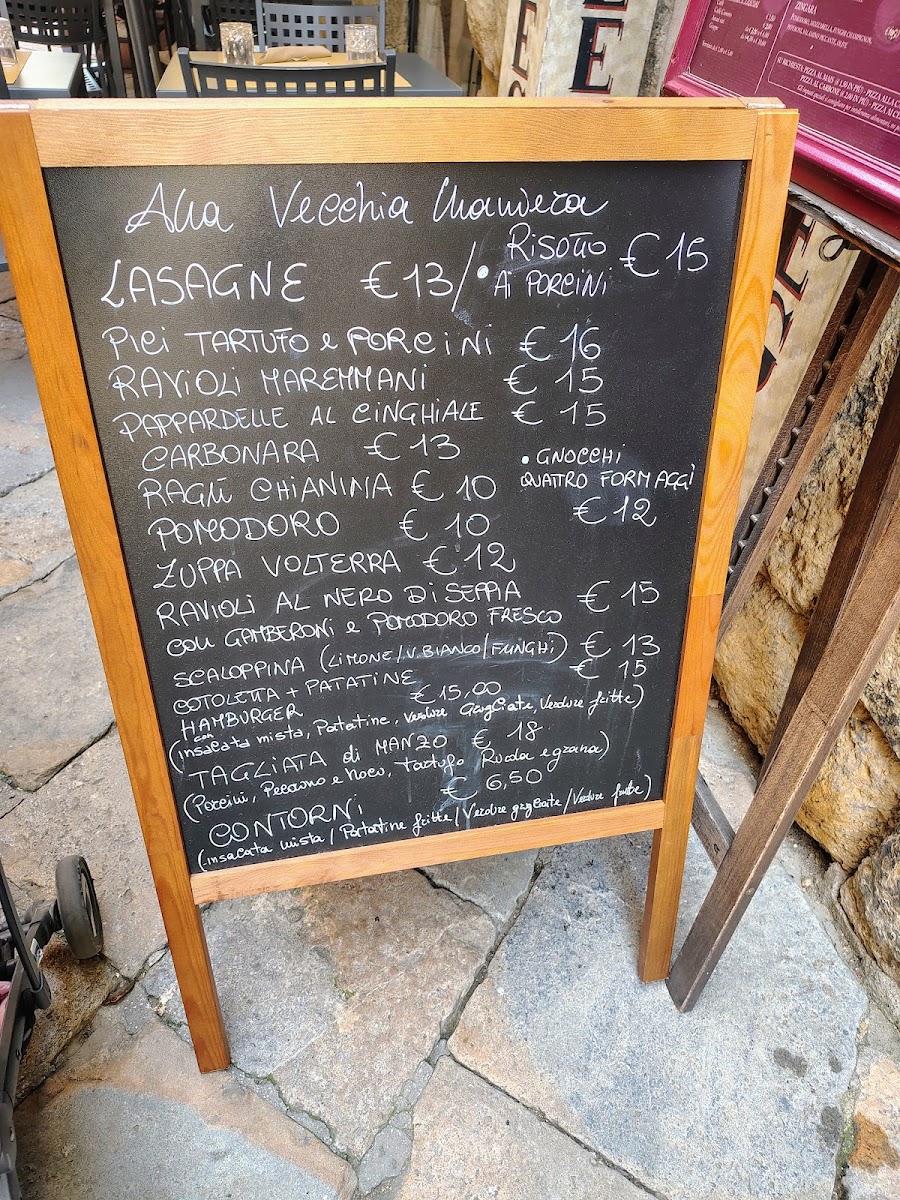 Alla Vecchia Maniera
LASAGNE €13/ • RISOTTO AI PORCINI €15
PICI TARTUFO e PORCINI €16
RAVIOLI MAREMMANI €15
PAPPARDELLE AL CINGHIALE €15
CARBONARA €13
• GNOCCHI
QUATTRO FORMAGGI
€12
RAGÙ CHIANINA €10
POMODORO €10
ZUPPA VOLTERRA €12
RAVIOLI AL NERO DI SEPPIA
CON GAMBERONI e POMODORO FRESCO €15
SCALOPPINA (LIMONE/V.BIANCO/FUNGHI) €13
COTOLETTA + PATATINE €15
HAMBURGER €15,00
(con insalata mista, Patatine, verdure Grigliate, Verdure fritte)
TAGLIATA di MANZO €18
(Porcini, Pecorino e Noci, Tartufo Rucola e grana)
CONTORNI €6,50
(insalata mista/Patatine fritte/Verdure grigliate/Verdure fritte)
ZINGARA
SU RICHIESTA: PIZZA AL MAIS
PIZZA AL CARBONE